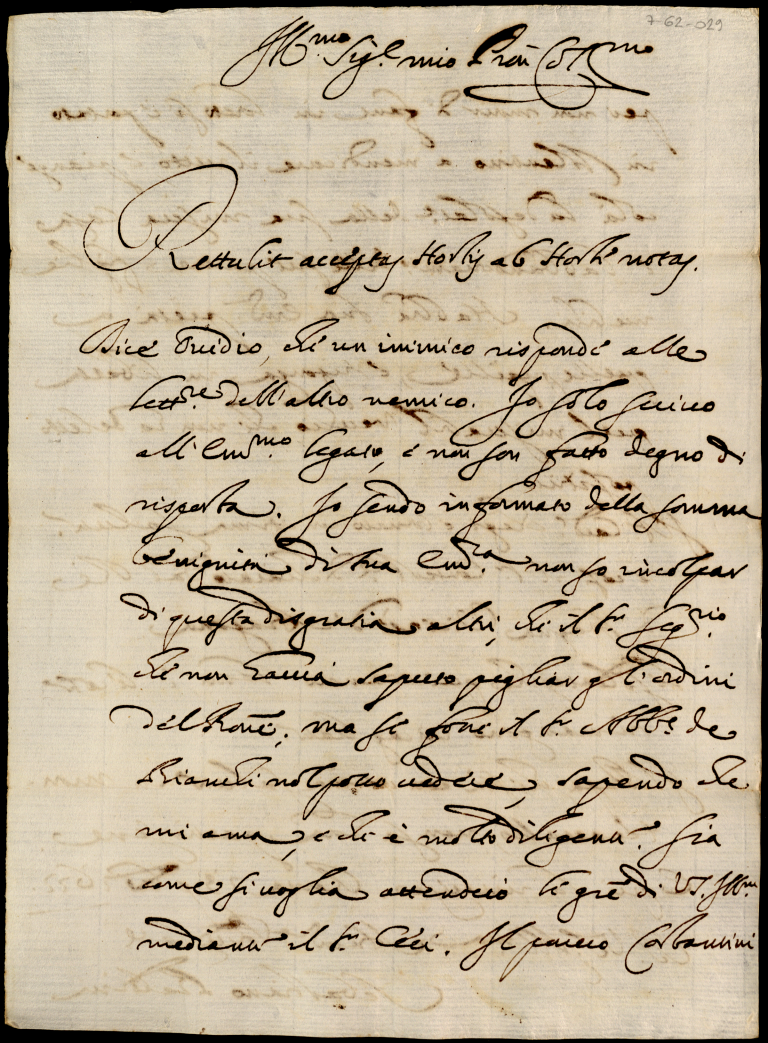 7-62-029
Ill.mo Sig.r mio Pron Col.mo
Rettulit acceptas Hostis ab Hoste notas.
Dice Ovidio, che un inimico risponde alle
lett.re dell'altro nemico. Io solo scrivo
all'Em.mo legato, e non son fatto degno di
risposta. Io sendo informato della somma
benignità di sua Em.a non so incolpar
di questa disgratia altri, che il S.r Seg.rio
che non havrà saputo pigliar gl'ordini
del Rone, ma se fosse il S.r Abb.e de
Bianchi nol posso credere, sapendo che
mi ama, e che è molto diligente. Sia
come si voglia attenderò le gre di V.S. Ill.ma
mediante il S.r Ceci. Il povero Costantini